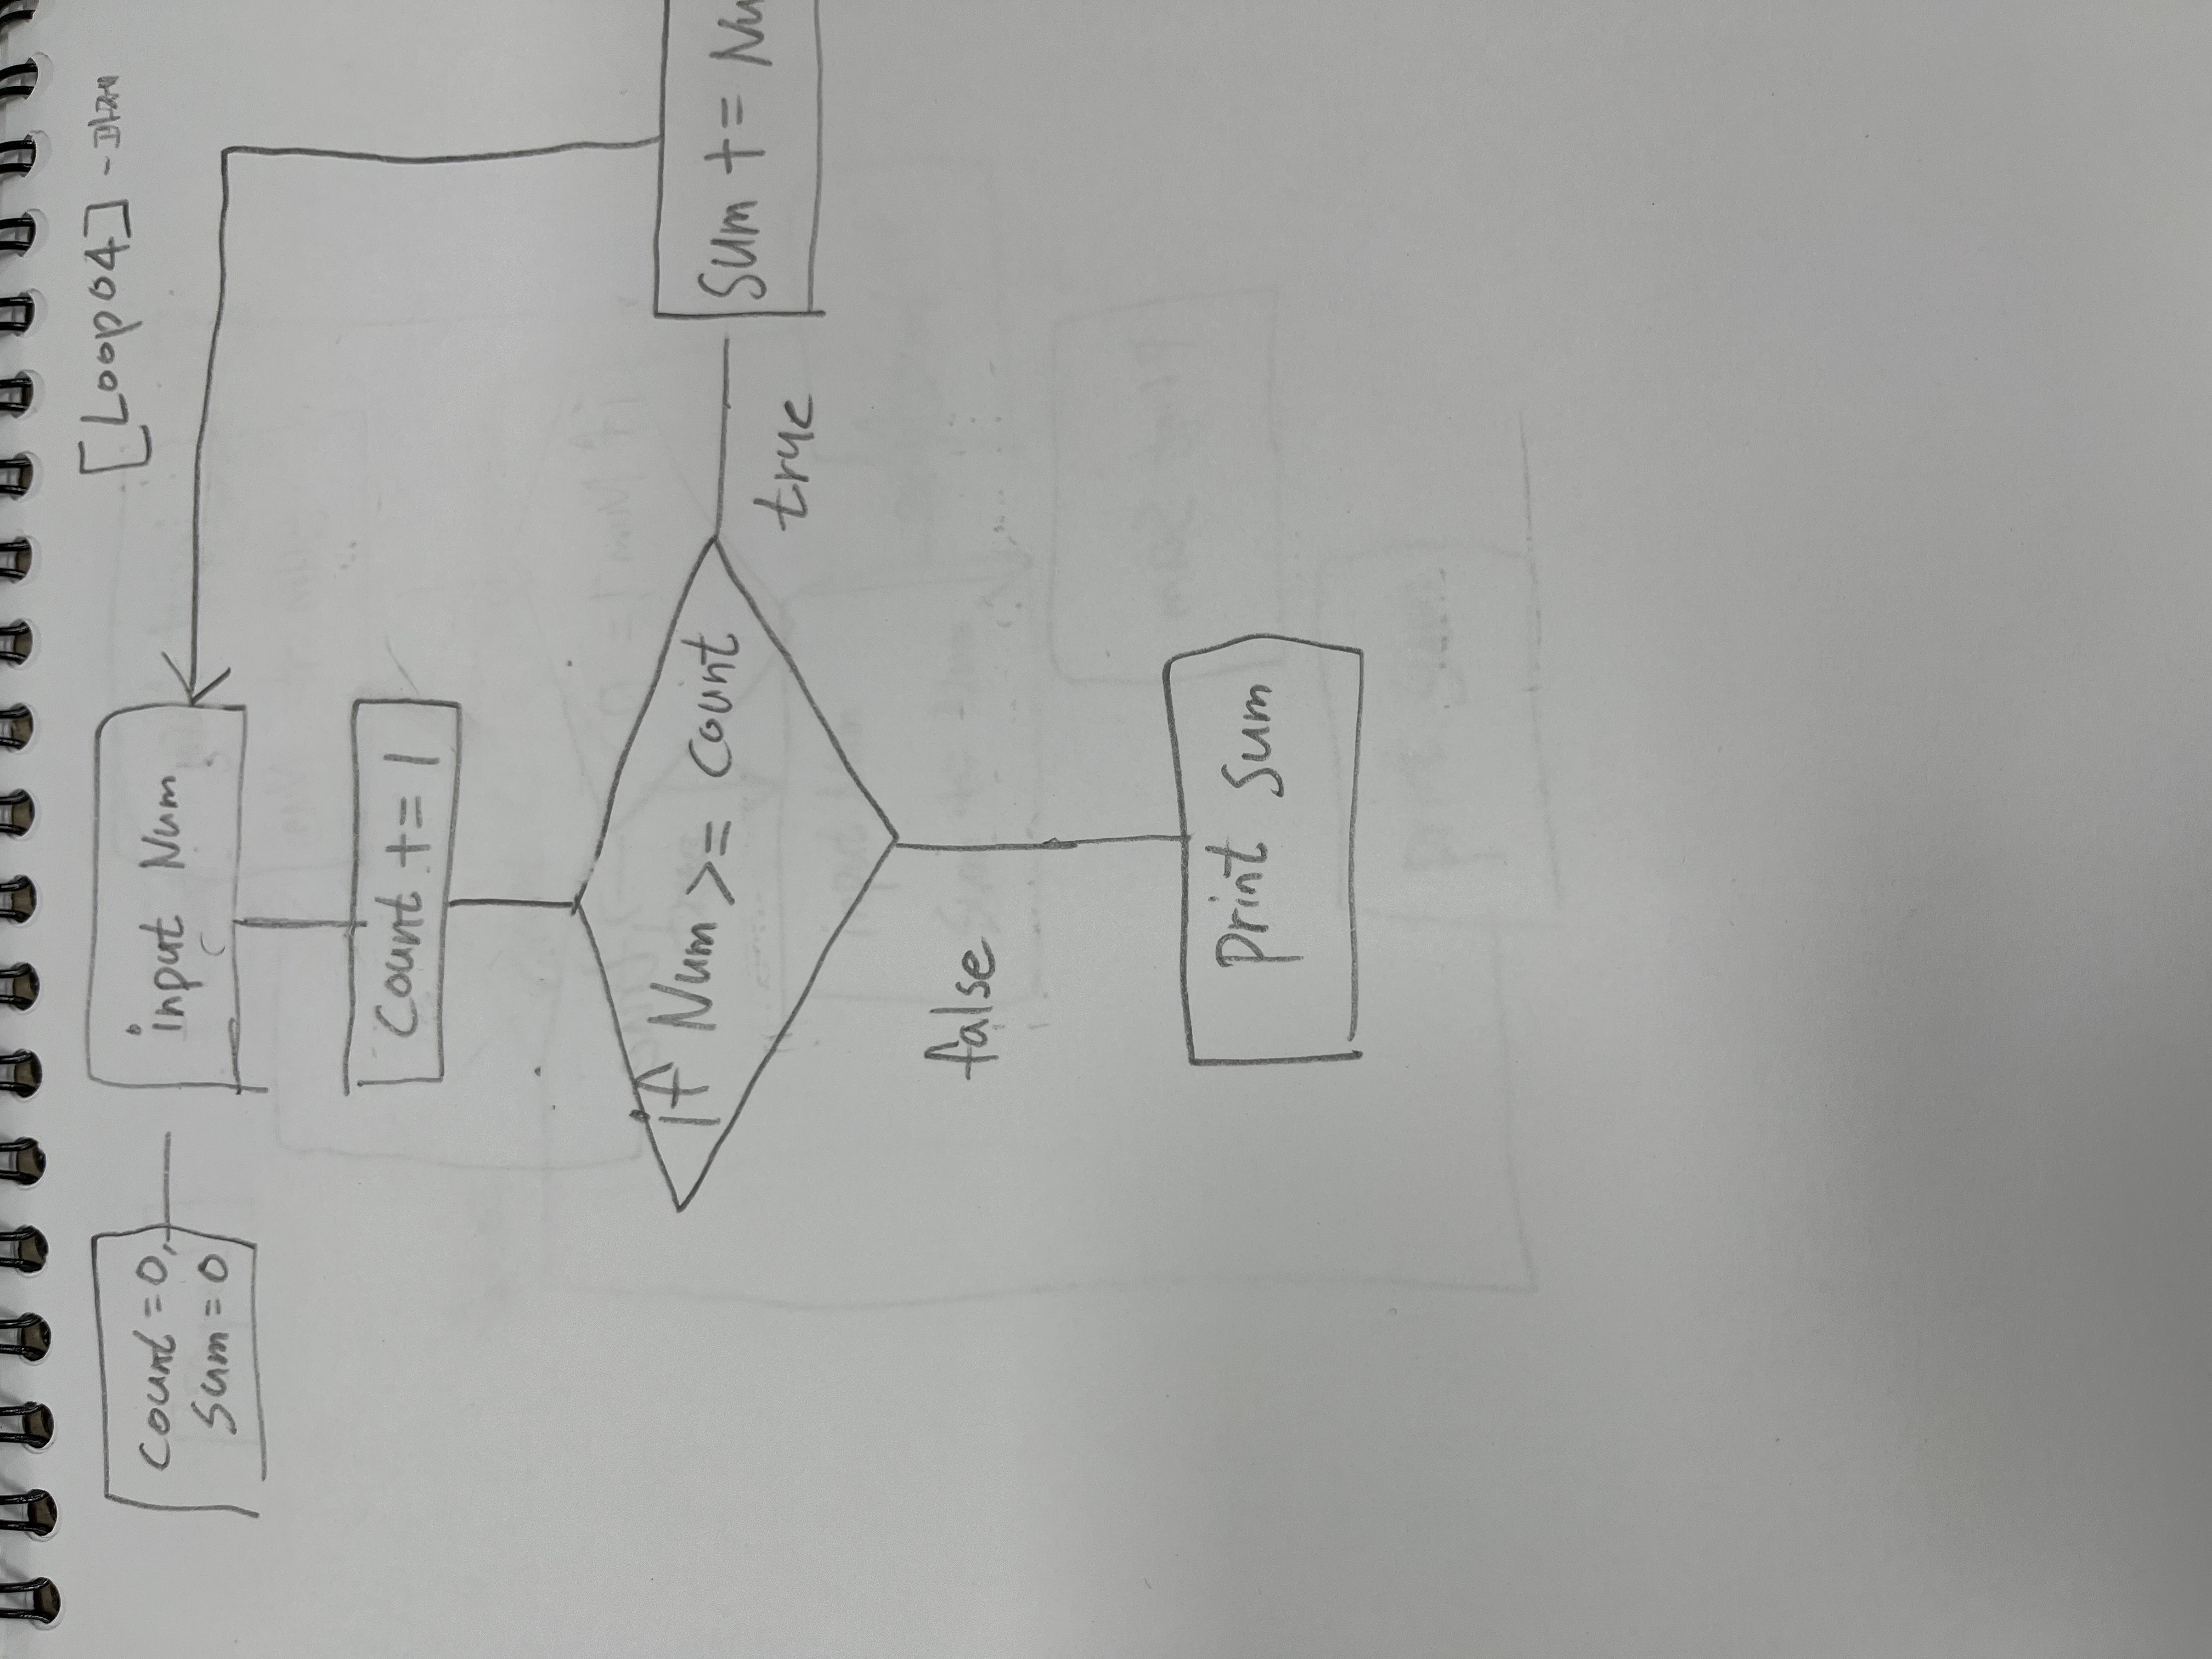 [Loop04] - 과제
count = 0,
sum = 0
input Num
Count += 1
if Num >= count
true
Sum += Nu
false
print sum